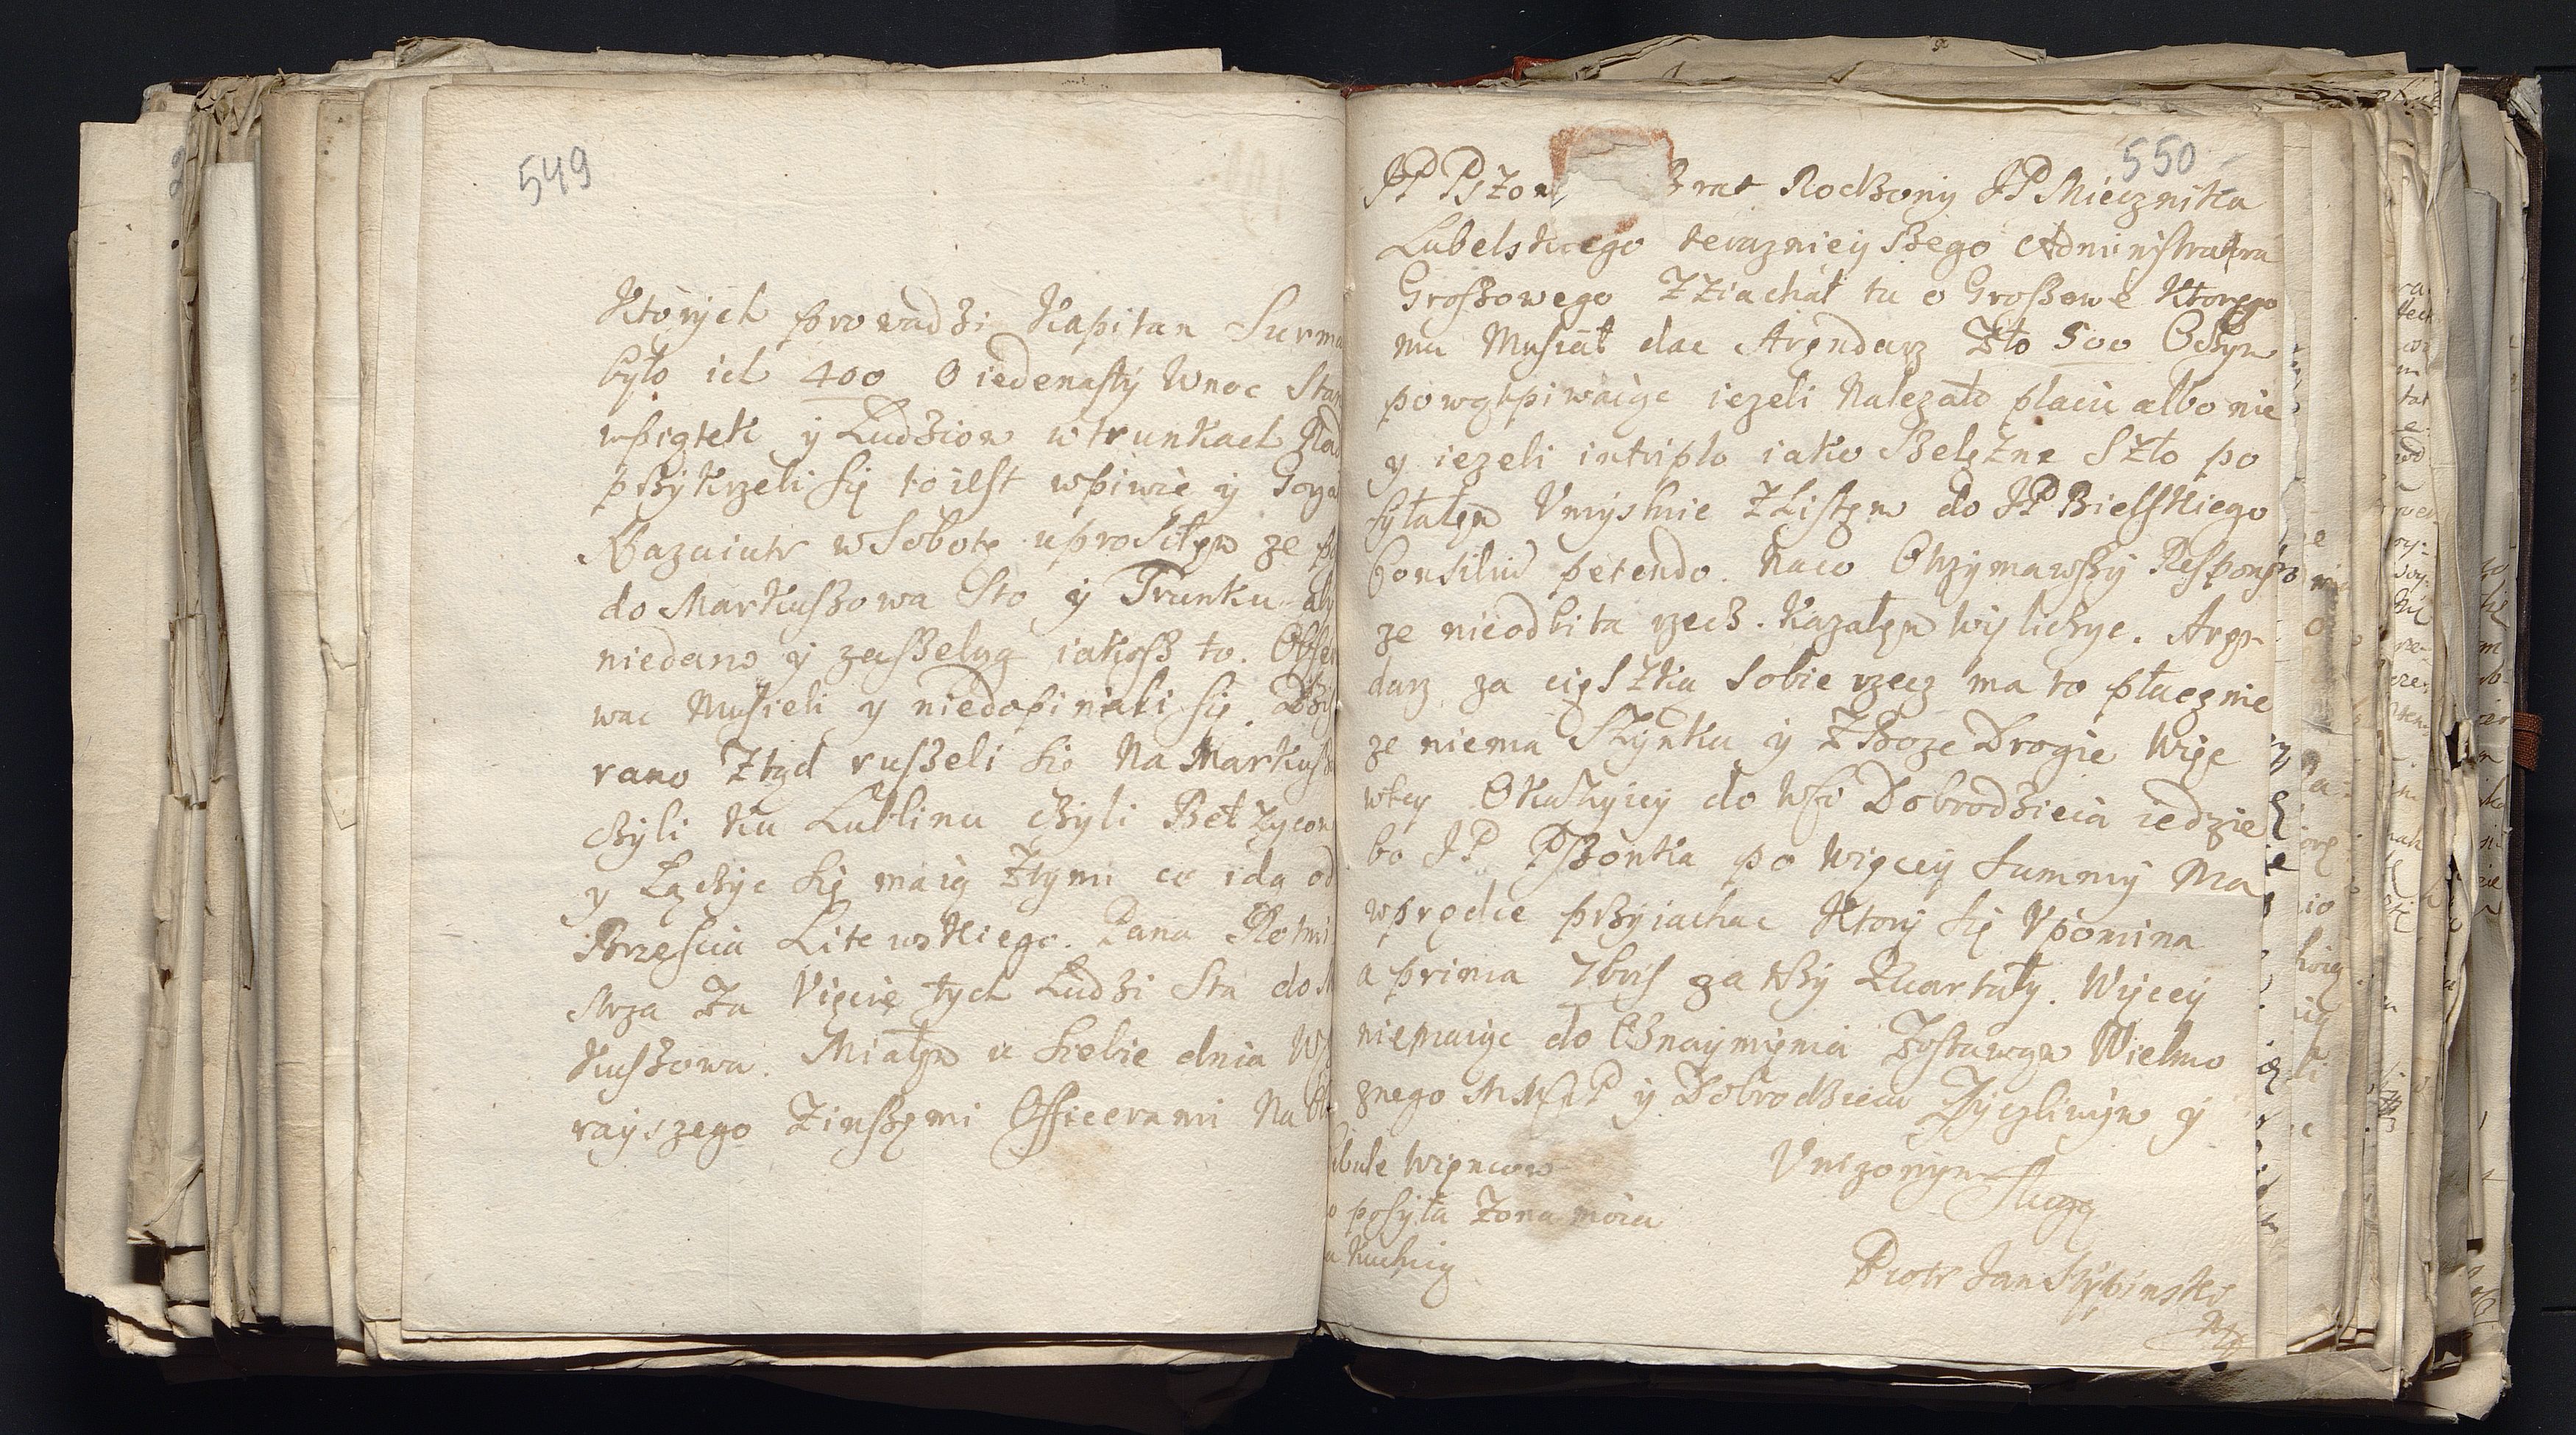 549
Ktorych prowadzi Kapitan Surma
było ich 400 O iedenasty Wnoc Sta
wpiątek y Ludziom wtrunkach Na
przykrzeli się to iest wpiwie y Gorza
Nazaiutr wSobotę uprosiłem ze po
do Markuszowa Sto y Trunku aby
niedano y zaszeluą iakosz to. Obser
wac Musieli y niedopiniali się. Dziś
rano Ztąd ruszeli się Na Markusz
Czyli Ku Lublinu Czyli Bełzycom
y Łączyc się maią Ztymi co ida od
Brzescia Litewskiego. Pana Rotmi
strza Za Vięcie tych Ludzi Sta do M
Kuszowa. Miałem u siebie dnia Wc
rayszego Zinszemi Officerami Na
550
JP Pszon Brat Rodzony JP Miecznika
Lubelskiego teraznieyszego Administratra
Groszowego ZZiachał tu o Groszowe Ktorego
mu Musiał dac Arendarz Zło 500 Czym
powątpiwaiąc iezeli Nalezało placic albo nie
y iezeli intriplo iako Szelęzne Szło po
syłałem Vmyslnie ZListem do JP Bielskiego
Consiliu petendo. Naco Otrzymawszy Respons
ze nieodbita rzecz. Kazałem Wyliczyc. Aren
darz za cięszka Sobie rzecz ma to płacznie
ze niema Szynku y Zboze Drogie Więc
wtey Okaziyey do WM Dobrodzieia iedzie
bo JP PSzonka po Więcey Summy Ma
wprędce przyiachac Ktory się Vpomina
a prima 7bris za trzy Kwartały. Więcey
niemaiąc do Oznaymienia Zostawam Wielmo
znego MMP y Dobrodzieia Zyczliwym y
Vnizonym Sługą
Piotr Jan Szybinski
Wiencow
posyła Zona moia
Kuchnią